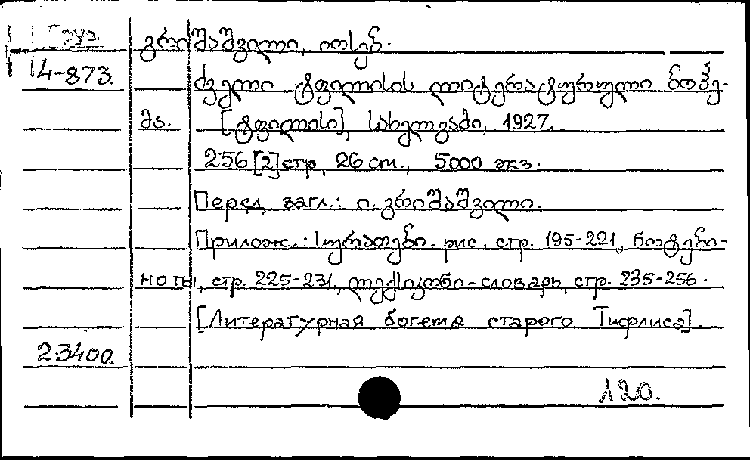 Груз. გრიშაშვილი, იოსებ.
14-873. ძველი ტფილისის ლიტერატურული ბოჰე-
მა. [ტფილისი], სახელგამი, 1927.
256 [2] стр, 26 cm., 5000 экз.
Перед загл.: ი. გრიშაშვილი.
Прилож.: სურათები - рис, стр. 195-221, ნოტები-
ноты, стр. 225-231, ლექსიკონი - словарь, стр. 235-256.
[Литературная богема старого Тифлиса].
23400.
120.